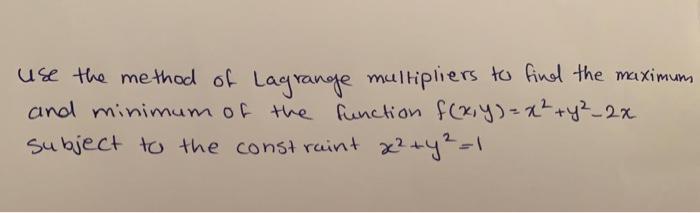 use the method of Lagrange multipliers to find the maximum
and minimum of the function f(x,y)=x²+y²-2x
subject to the constraint x²+y²=1